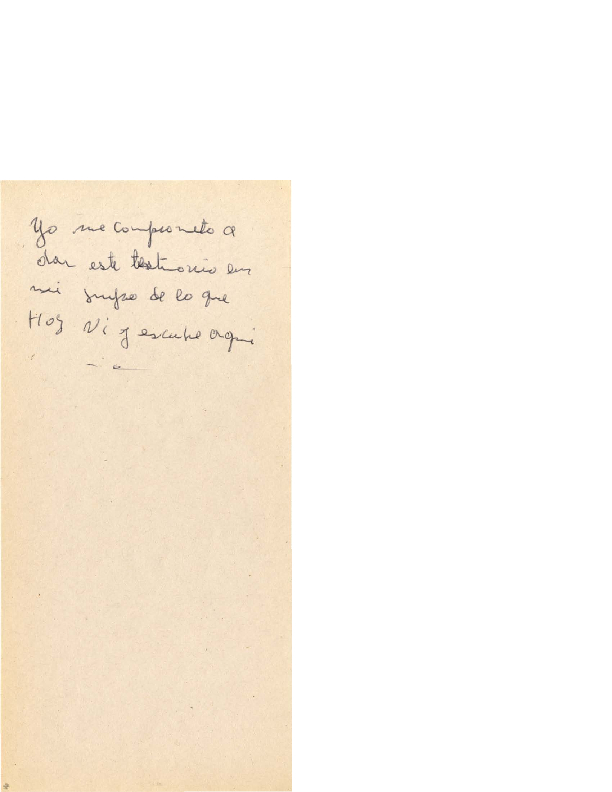 Yo me comprometo a
dar este testimonio en
mi grupo de lo que
Hoy Vi y escuche aqui